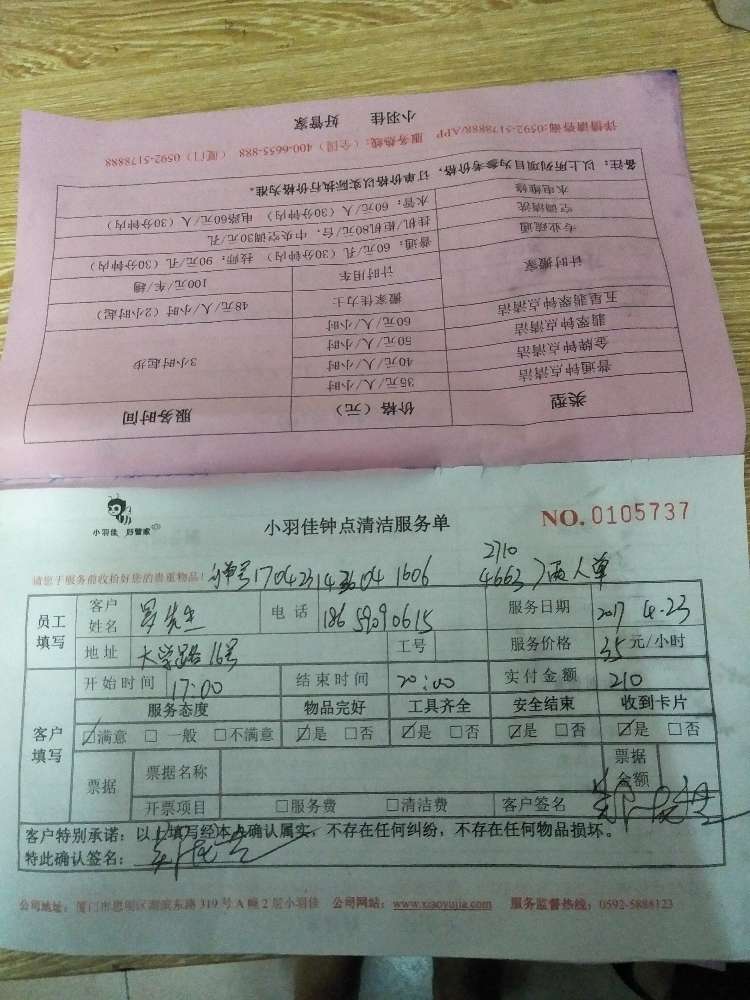 小羽佳 好管家
详情请咨询:0592-5178888/APP 服务热线:(全国)400-6655-888 (厦门)0592-5178888
备注:以上所列项目为参考价格,订单价格以实际执行价格为准。
水电维修 水管:60元/人(30分钟内) 电路60元/人(30分钟内)
空调清洗 挂机/柜机80元/台,中央空调30元/孔
专业疏通 普通:60元/孔(30分钟内) 技师:90元/孔(30分钟内)
计时搬家 计时用车 100元/车/辆
搬家佳力士 48元/人/小时(2小时起)
五星翡翠钟点清洁 60元/人/小时
翡翠钟点清洁 50元/人/小时 3小时起步
金牌钟点清洁 40元/人/小时
普通钟点清洁 35元/人/小时
类型 价格(元) 服务时间
小羽佳 好管家
小羽佳钟点清洁服务单
NO. 0105737
请您于服务前收拾好您的贵重物品!
2710
4663
员工填写 客户姓名 先生 电话 18659090615 服务日期 2017 4.23
地址 大学路16号 工号 服务价格 35 元/小时
开始时间 17:00 结束时间 20:00 实付金额 210
客户填写 服务态度 物品完好 工具齐全 安全结束 收到卡片
☑满意 □一般 □不满意 ☑是 □否 ☑是 □否 ☑是 □否 ☑是 □否
票据 票据名称 票据金额
开票项目 □服务费 □清洁费 客户签名
客户特别承诺:以上填写经本点确认属实,不存在任何纠纷,不存在任何物品损坏。
特此确认签名:
公司地址:厦门市思明区湖滨东路319号A幢2层小羽佳 公司网站:www.xiaoyujia.com 服务监督热线:0592-5888123